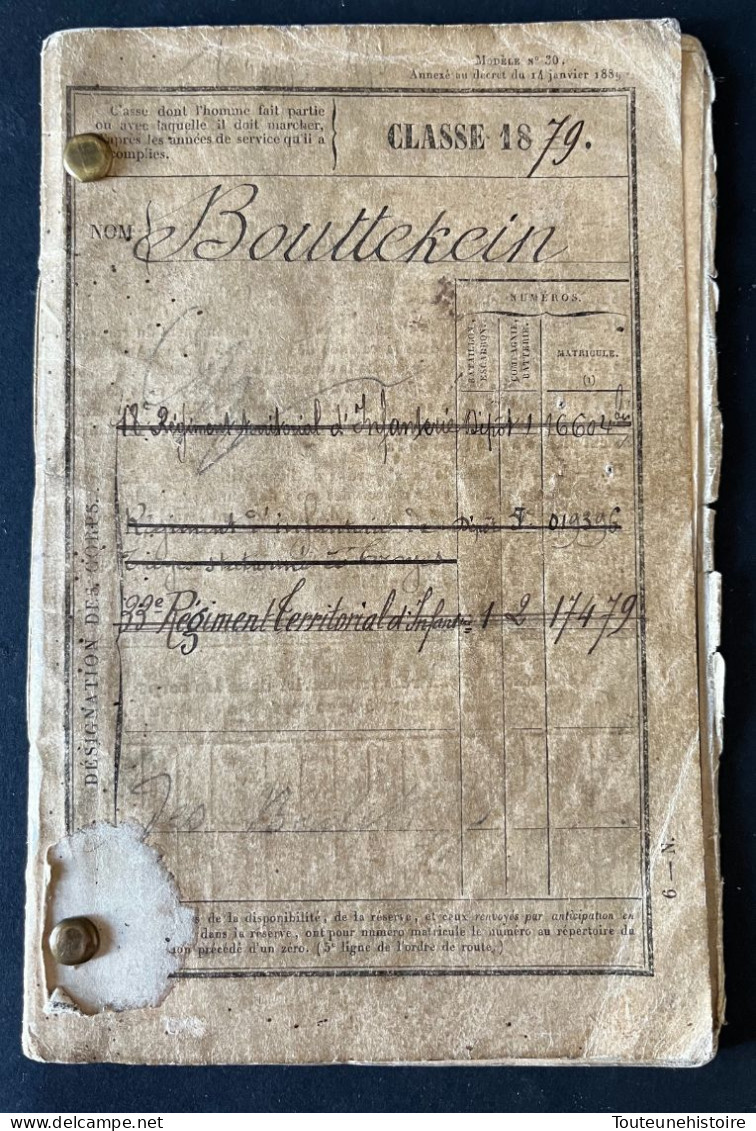 MODÈLE N° 30.
Annexé au décret du 14 janvier 188
Classe dont l'homme fait partie
ou avec laquelle il doit marcher,
d'après les années de service qu'il a
complies.
CLASSE 1879.
NOM
Bouttekein
NUMÉROS.
BATAILLON, ESCADRON.
COMPAGNIE, BATTERIE.
MATRICULE.
(1)
DÉSIGNATION DES CORPS.
Régiment territorial d'Infanterie Dépôt 1 16604
Régiment d'infanterie de Dépôt 019396
à Troyes
93e Régiment Territorial d'Infanterie 1 2 17479
6 — N.
s de la disponibilité, de la réserve, et ceux renvoyés par anticipation en
dans la réserve, ont pour numéro matricule le numéro au répertoire du
ion précédé d'un zéro. (5e ligne de l'ordre de route.)
Touteunehistoire